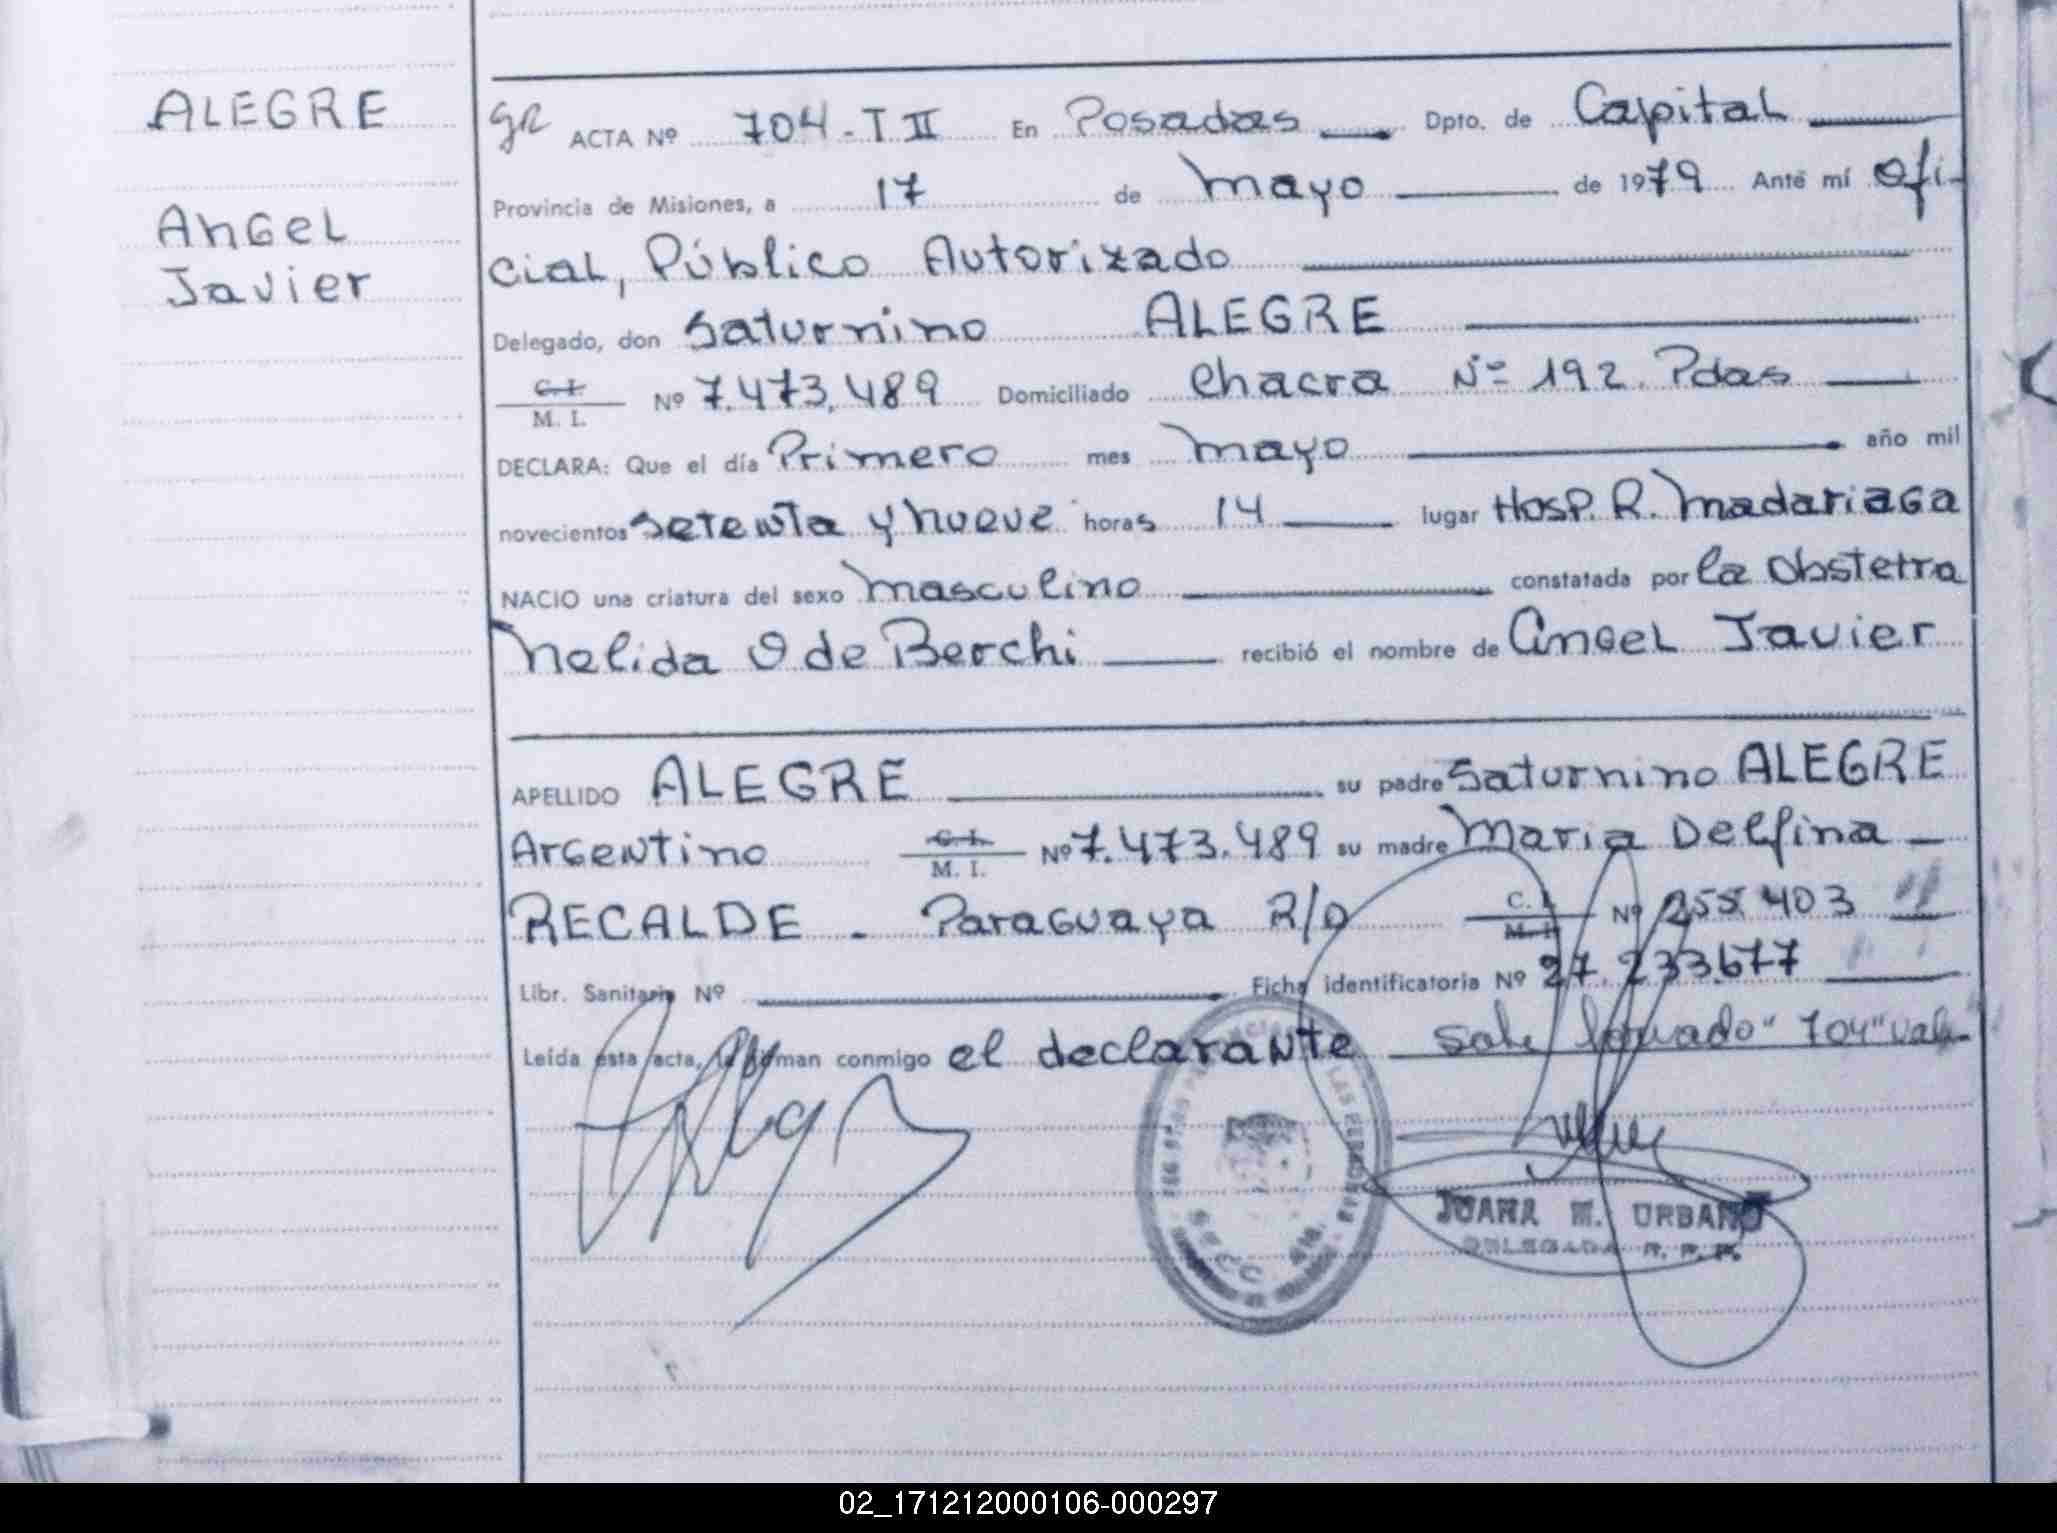 ALEGRE
Angel
Javier
ACTA Nº 704-T II En Posadas Dpto. de Capital
Provincia de Misiones, a 17 de mayo de 1979 Anté mí Ofi-
cial, Público Autorizado
Delegado, don Saturnino ALEGRE
C. I.
M. I. Nº 7.473.489 Domiciliado Chacra Nº 192. Pdas
DECLARA: Que el día Primero mes mayo año mil
novecientos setenta y nueve horas 14 lugar Hosp. R. Madariaga
NACIO una criatura del sexo masculino constatada por la obstetra
Nelida O de Berchi recibió el nombre de Angel Javier
APELLIDO ALEGRE su padre Saturnino ALEGRE
Argentino C. I.
M. I. Nº 7.473.489 su madre Maria Delfina
RECALDE - Paraguaya R/D C. I.
M. I. Nº 255.403
Libr. Sanitaria Nº Ficha identificatoria Nº 27.233.677
Leída esta acta, la firman conmigo el declarante sobre "704" vale
JUANA M. URBANO
DELEGADA R. P. P.
02_171212000106-000297